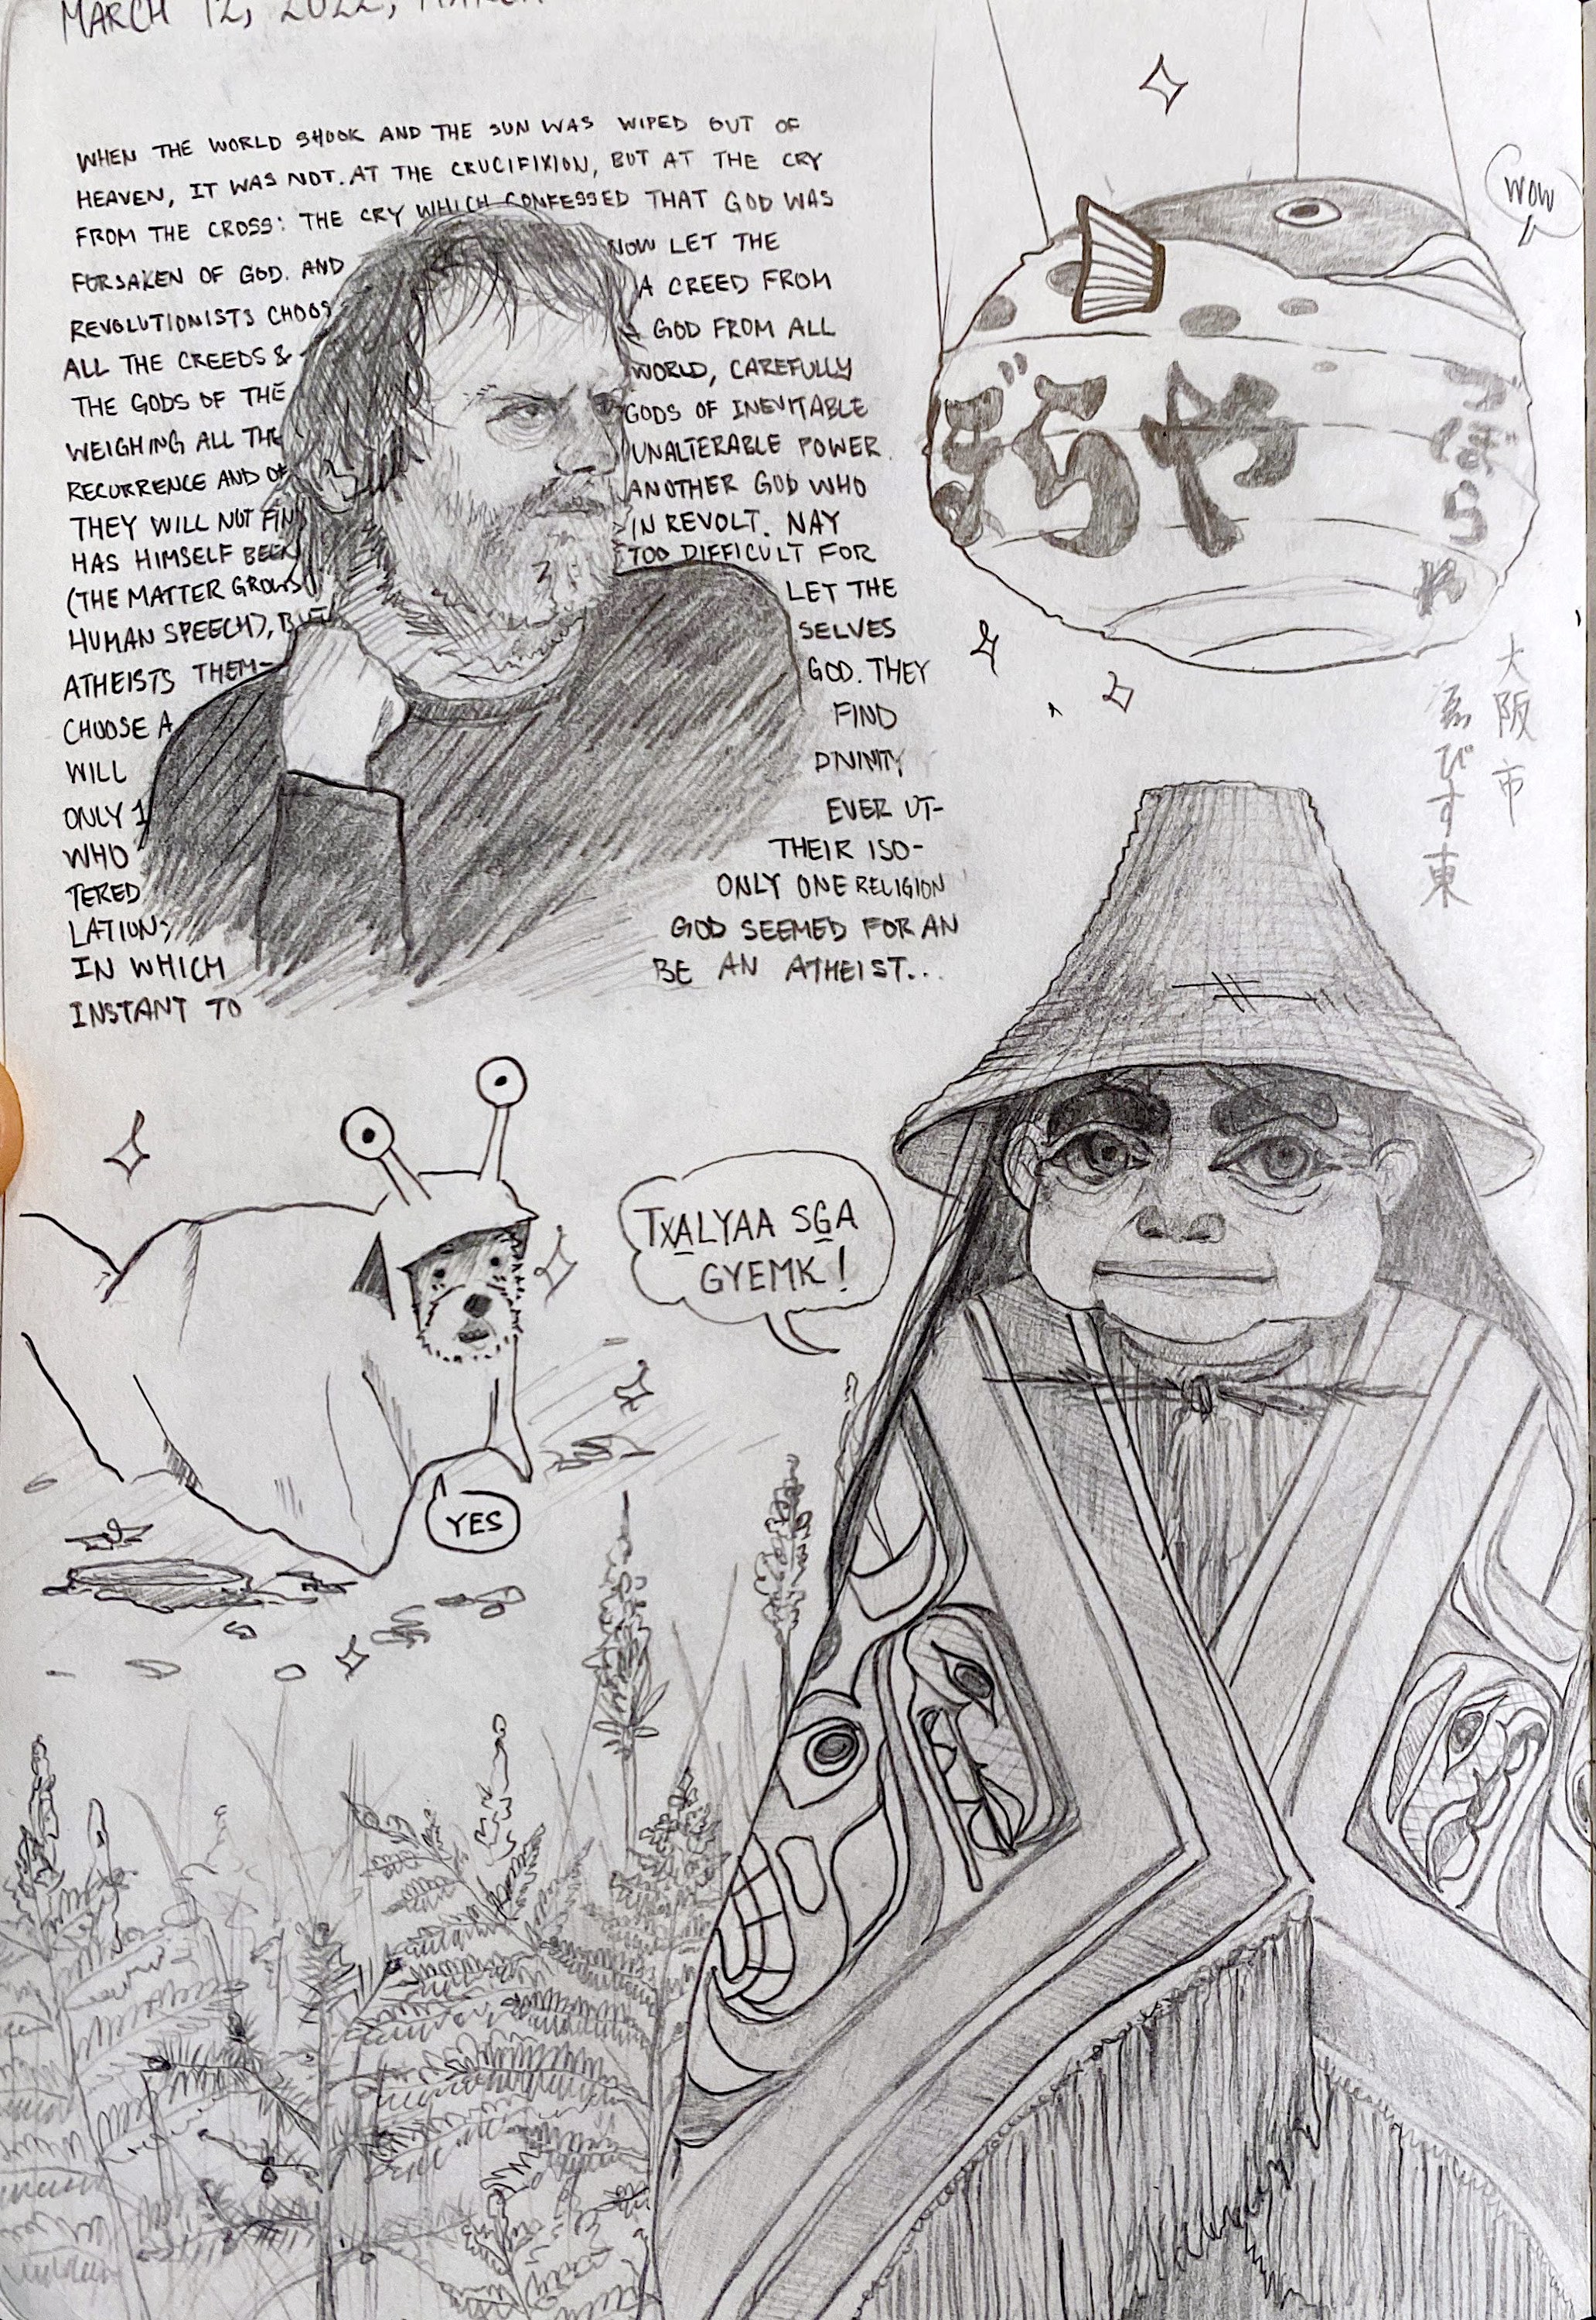 MARCH 12, 2022, MARCH
WHEN THE WORLD SHOOK AND THE SUN WAS WIPED OUT OF
HEAVEN, IT WAS NOT. AT THE CRUCIFIXION, BUT AT THE CRY
FROM THE CROSS: THE CRY WHICH CONFESSED THAT GOD WAS
FORSAKEN OF GOD. AND NOW LET THE
REVOLUTIONISTS CHOOSE A CREED FROM
ALL THE CREEDS & A GOD FROM ALL
THE GODS OF THE WORLD, CAREFULLY
WEIGHING ALL THE GODS OF INEVITABLE
RECURRENCE AND OF UNALTERABLE POWER.
THEY WILL NOT FIND ANOTHER GOD WHO
HAS HIMSELF BEEN IN REVOLT. NAY
(THE MATTER GROWS TOO DIFFICULT FOR
HUMAN SPEECH), BUT LET THE
ATHEISTS THEM- SELVES
CHOOSE A GOD. THEY
WILL FIND
ONLY 1 DIVINITY
WHO EVER UT-
TERED THEIR ISO-
LATION; ONLY ONE RELIGION
IN WHICH GOD SEEMED FOR AN
INSTANT TO BE AN ATHEIST...
WOW
づぼらや
づぼらや
大阪市
ゑびす東
TXA̲LYAA SG̲A
GYEMK!
YES